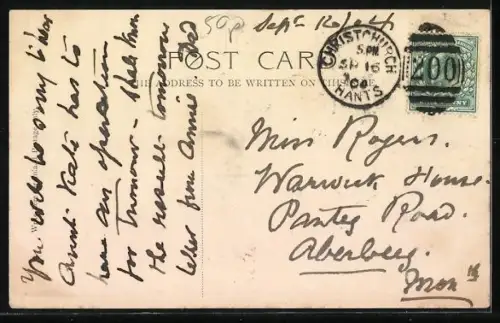 50p
Sept
POST CARD
THE ADDRESS TO BE WRITTEN ON THIS SIDE
CHRISTCHURCH
5 PM
SP 16
HANTS
200
You will be sorry to hear
Aunt Kate has to
have an operation
for tumour - shall know
the result tomorrow
letter from Annie. Dad
Miss Rogers.
Warwick House.
Panteg Road.
Aberbeeg.
Mon